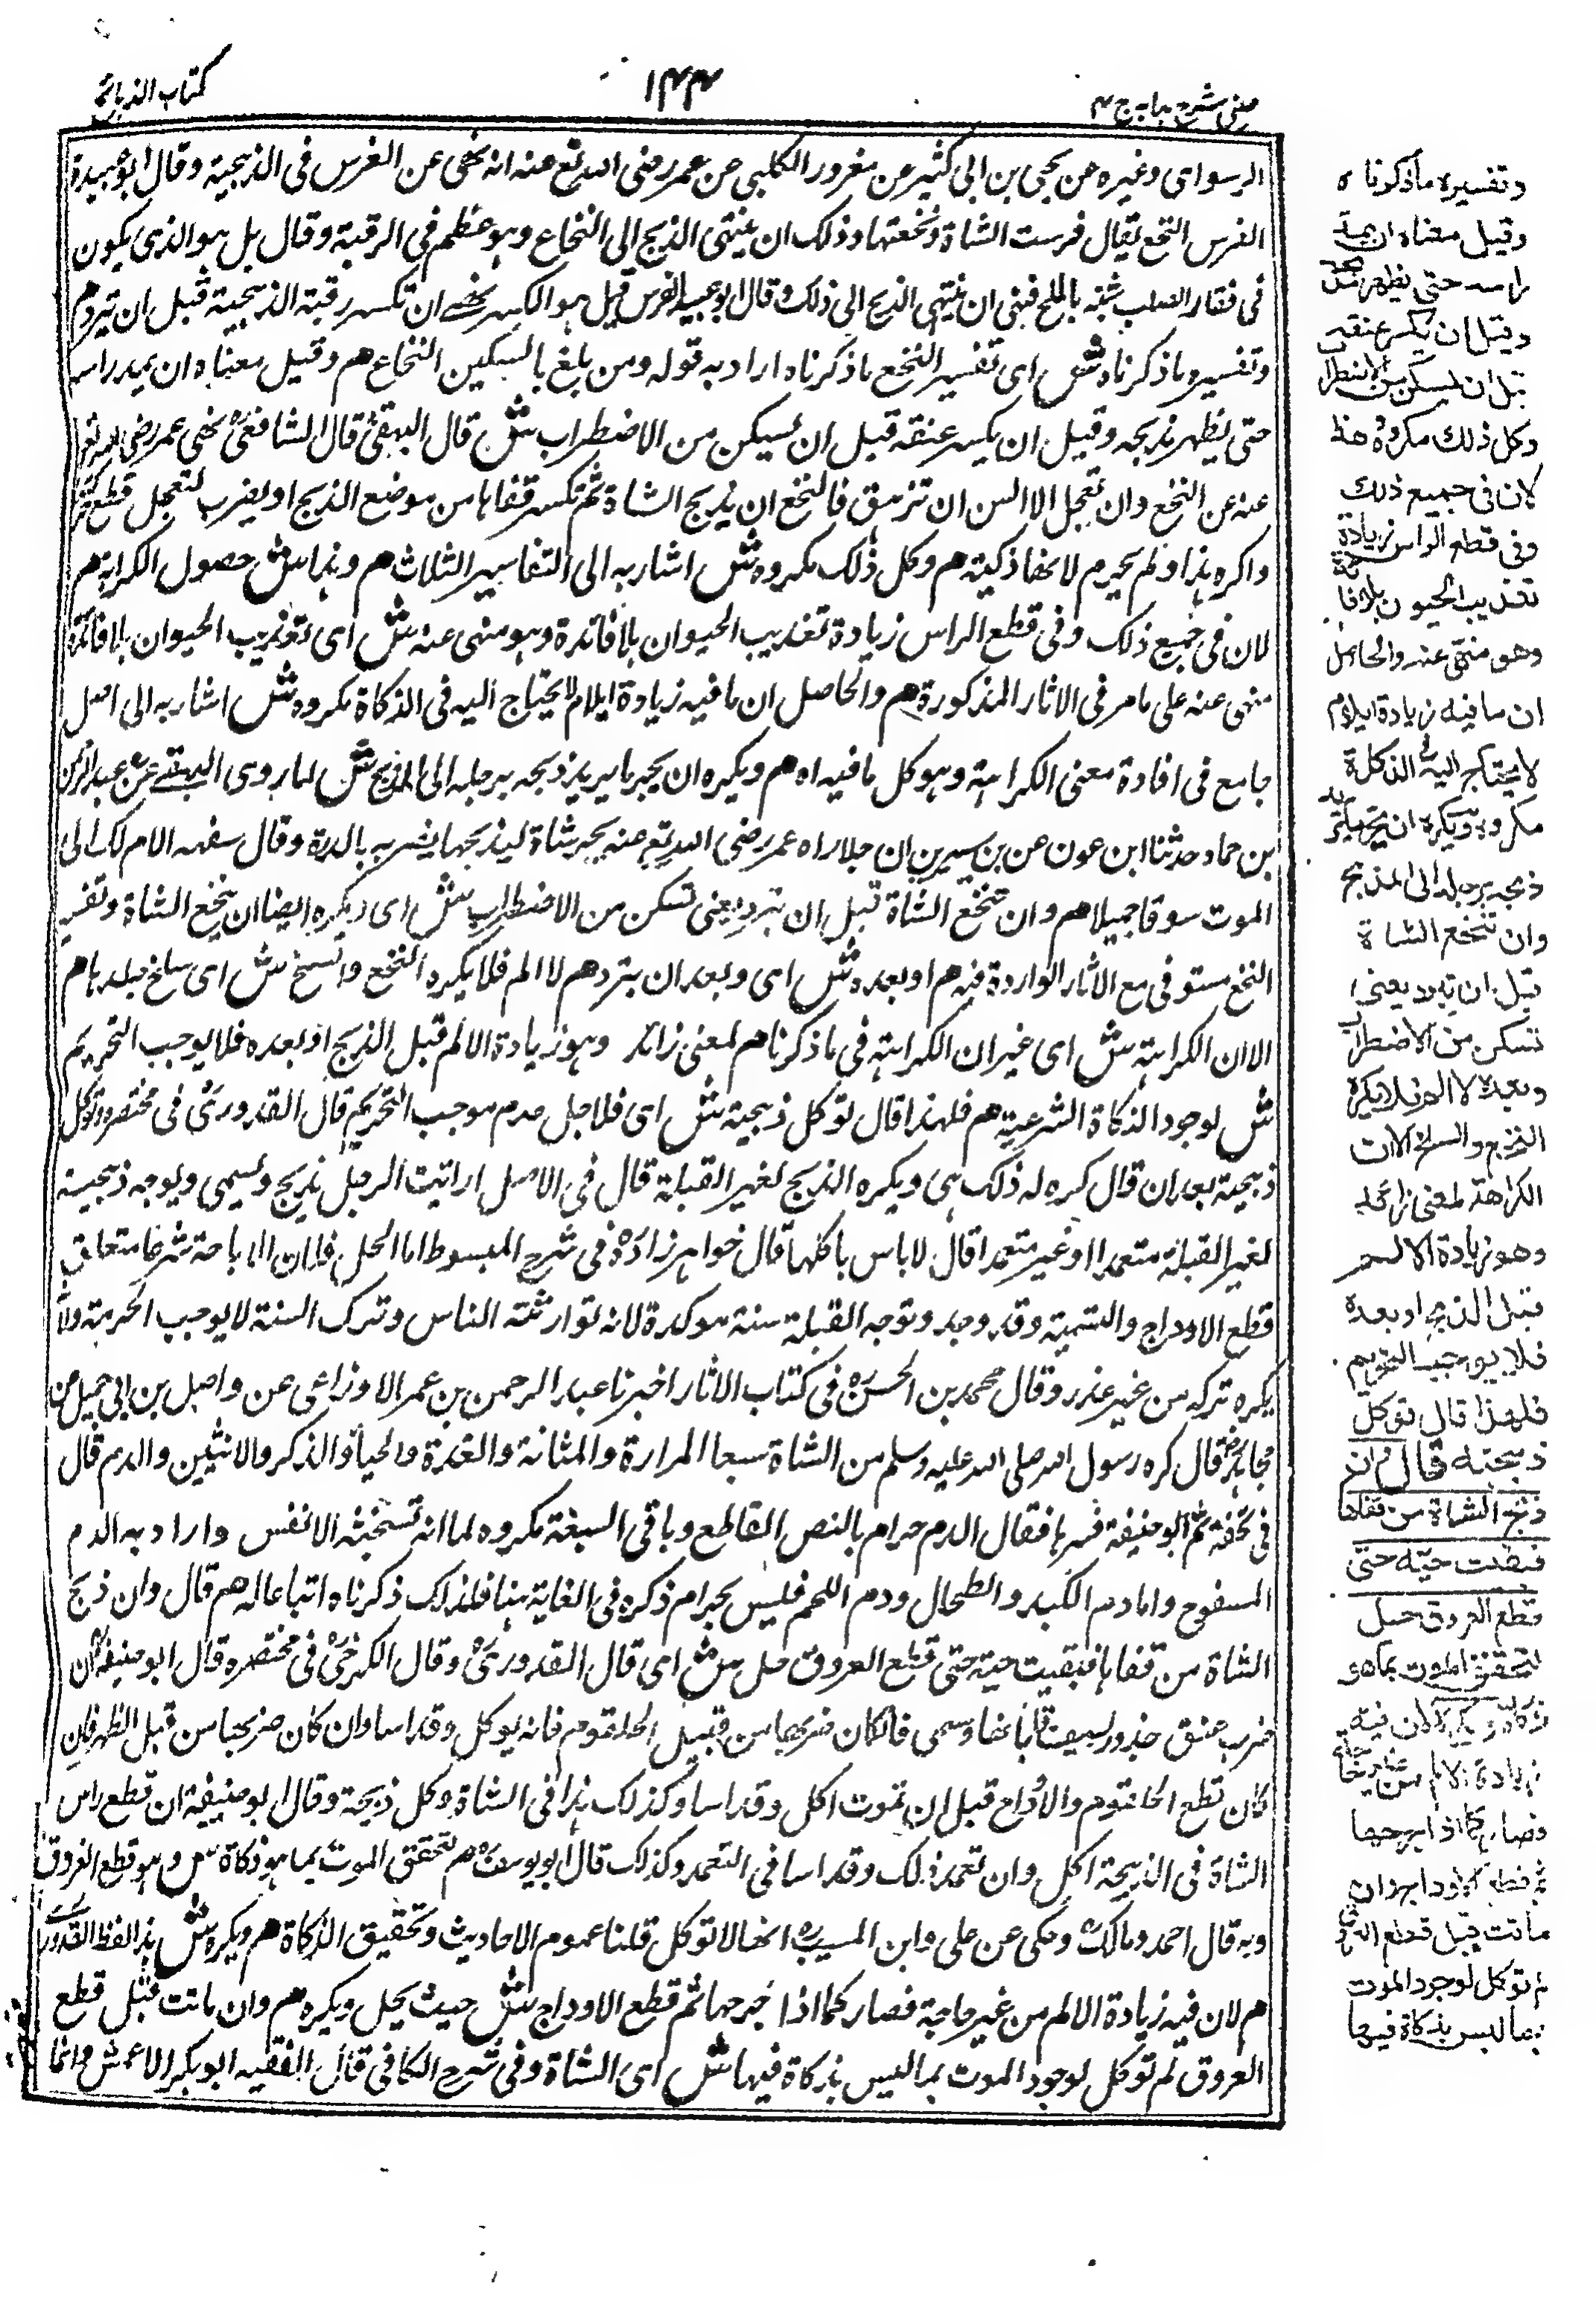 كتاب الذبائح
١٤٤
عينى شرح هدايه ج ٤
الرسواى وغيره عن يحيى بن ابى كثير عن مغرور الكلبى عن عمر رضى الله تع عنه انه نهى عن الفرس فى الذبيحة وقال ابو عبيدة
الفرس النخع يقال فرست الشاة ونخعتها وذلك ان ينتهى الذبح الى النخاع وهو عظم فى الرقبة وقال بل هو الذى يكون
فى فقار الصلب شبه بالمخ فنهى ان ينتهى الذبح الى ذلك وقال ابو عبيد الفرس قيل هو الكسر نهى ان تكسر رقبة الذبيحة قبل ان تبرد هم
وتفسيره ما ذكرناه ش اى تفسير النخع ما ذكرناه اراد به قوله ومن بلغ بالسكين النخاع هم وقيل معناه ان يمد راسه
حتى يظهر مذبحه وقيل ان يكسر عنقه قبل ان يسكن من الاضطراب ش قال البيهقى قال الشافعى نهى عمر رضى الله تعالى
عنه عن النخع وان تعجل الانفس ان تزهق فالنخع ان يذبح الشاة ثم تكسر قفاها من موضع الذبح او يضرب لتعجل قطع
واكره هذا ولم يحرم لانها ذكية هم وكل ذلك مكروه ش اشار به الى التفاسير الثلاث هم وهذا ش حصول الكراهة هم
لان فى جميع ذلك وفى قطع الراس زيادة تعذيب الحيوان بلا فائدة وهو منهى عنه ش اى تعذيب الحيوان بلا فائدة
منهى عنه على ما مر فى الاثار المذكورة هم والحاصل ان ما فيه زيادة ايلام لا يحتاج اليه فى الذكاة مكروه ش اشار به الى اصل
جامع فى افادة معنى الكراهة وهو كل ما فيه اه هم ويكره ان يجر ما يريد ذبحه برجله الى المذبح ش لما روى البيهقى عن عبد الرحمن
بن حماد حدثنا ابن عون عن بن سيرين ان رجلا راه عمر رضى الله تع عنه يجر شاة ليذبحها يضربه بالدرة وقال سقها لا ام لك الى
الموت سوقا جميلا هم وان تنخع الشاة قبل ان تبرد يعنى تسكن من الاضطراب ش اى ويكره ايضا ان ينخع الشاة وتفسير
النخع مستوفى مع الاثار الواردة فيه هم او بعده ش اى وبعد ان يبرد هم لا الم فلا يكره النخع والسلخ ش اى سلخ جلدها هم
الا ان الكراهة ش اى غير ان الكراهة فى ما ذكرنا هم لمعنى زائد وهو زيادة الالم قبل الذبح او بعده فلا يوجب التحريم
ش لوجود الذكاة الشرعية هم فلهذا قال توكل ذبيحة ش اى فلاجل عدم موجب التحريم قال القدورى فى مختصره توكل
ذبيحة بعد ان قال كره له ذلك هى ويكره الذبح لغير القبلة قال فى الاصل ارائيت الرجل يذبح ويسمى ويوجه ذبيحته
لغير القبلة متعمدا او غير متعمد اقال لا باس باكلها قال خواهر زاده فى شرح المبسوط اما الحل فلان الاباحة شرعا متعلق
قطع الاوداج والتسمية وقد وجد وتوجه القبلة سنة موكدة لانه توارثته الناس وترك السنة لا يوجب الحرمة ولا
يكره تركه من غير عذر وقال محمد بن الحسن فى كتاب الاثار اخبرنا عبد الرحمن بن عمر الاوزاعى عن واصل بن ابى جميل عن
مجاهد قال كره رسول الله صلى الله عليه وسلم من الشاة سبعا المرارة والمثانة والغدة والحياء والذكر والانثيين والدم قال
فى تحفة ثم ابو حنيفة فسرها فقال الدم حرام بالنص القاطع وباقى السبعة مكروه لما انه تستخبثه الانفس واراد به الدم
المسفوح واما دم الكبد والطحال ودم اللحم فليس بحرام ذكره فى الغاية هنا فلذلك ذكرناه اتباعا له هم قال وان ذبح
الشاة من قفاها فبقيت حية حتى قطع العروق حل ش اى قال القدورى وقال الكرخى فى مختصره قال ابو حنيفة ان
ضرب عنق جزور بسيف فابانها وسمى فان كان ضربها من قبيل الحلقوم فانه يوكل وقد اسا وان كان ضربها من قبل الظهر فان
كان قطع الحلقوم والاوداج قبل ان تموت اكل وقد اسا وكذلك هذا فى الشاة وكل ذبيحة وقال ابو حنيفة ان قطع راس
الشاة فى الذبيحة اكل وان تعمد ذلك وقد اسا فى التعمد وكذلك قال ابو يوسف هم لتحقق الموت بما هو ذكاة ش وهو قطع العروق
وبه قال احمد ومالك وحكى عن على وابن المسيب انها لا توكل قلنا عموم الاحاديث وتحقيق الذكاة هم ويكره ش هذا لفظ القدورى
هم لان فيه زيادة الالم من غير حاجة فصار كما اذا جرحها ثم قطع الاوداج ش حيث يحل ويكره هم وان ماتت قبل قطع
العروق لم توكل لوجود الموت بما ليس بذكاة فيها ش اى الشاة وفى شرح الكافى قال الفقيه ابو بكر الاعمش وانما
وتفسيره ما ذكرناه
وقيل معناه ان يمد
راسه حتى يظهر مذبحه
وقيل ان يكسر عنقه
قبل ان يسكن من الاضطراب
وكل ذلك مكروه هذا
لان فى جميع ذلك
وفى قطع الراس زيادة
تعذيب الحيوان بلا فائدة
وهو منهى عنه والحاصل
ان ما فيه زيادة ايلام
لا يحتاج اليه فى الذكاة
مكروه ويكره ان يجر ما يريد
ذبحه برجله الى المذبح
وان تنخع الشاة
قبل ان تبرد يعنى
تسكن من الاضطراب
وبعده لا الم فلا يكره
النخع والسلخ الا ان
الكراهة لمعنى زائد
وهو زيادة الالم
قبل الذبح او بعده
فلا يوجب التحريم
فلهذا قال توكل
ذبيحته قال وان
ذبح الشاة من قفاها
فبقيت حية حتى
قطع العروق حل
لتحقق الموت بما هو
ذكاة ويكره لان فيه
زيادة الالم من غير حاجة
فصار كما اذا جرحها
ثم قطع الاوداج وان
ماتت قبل قطع العروق
لم توكل لوجود الموت
بما ليس بذكاة فيها